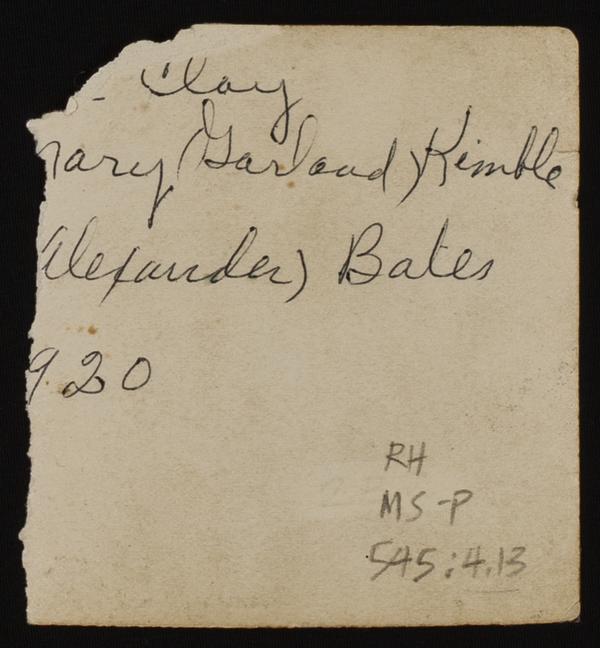 - Clay
Mary (Garland) Kimble
Alexander) Bates
920
RH
MS-P
545:4.13